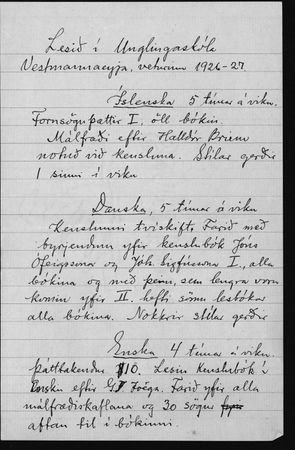 Lesið í Unglingaskóla
Vestmannaeyja, veturinn 1926-27.
Íslenska 5 tímar á viku.
Fornsöguþættir I, öll bókin.
Málfræði eftir Halldór Briem
notuð við kensluna. Stílar gerðir
1 sinni í viku
Danska, 5 tímar á viku
Kenslunni tvískift. Farið með
byrjendum yfir kenslubók Jóns
Ófeigssonar og Jóh. Sigfússonar I., alla
bókina og með þeim, sem lengra voru
komnir yfir II. hefti sömu lesbókar
alla bókina. Nokkrir stílar gerðir
Enska 4 tímar á viku.
Þátttakendur 10. Lesin Kenslubók í
Ensku eftir G. T. Zoëga. Farið yfir alla
málfræðiskaflana og 30 sögur
aftan til í bókinni.